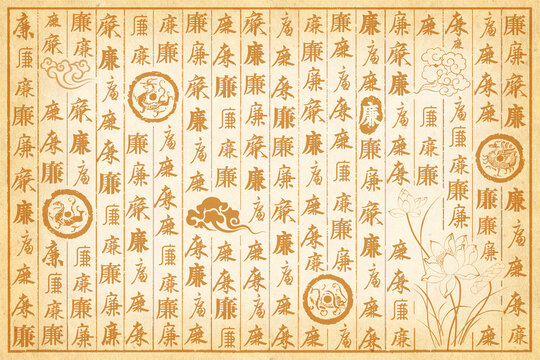 廉廉廉廉廉廉廉廉廉廉
廉廉廉廉廉廉廉廉廉廉
廉廉廉廉廉廉廉
廉廉廉廉廉
廉廉廉廉廉廉
廉廉廉廉廉廉廉廉廉廉廉
廉廉廉廉廉廉廉廉廉廉廉
廉廉廉廉廉廉廉廉廉
廉廉廉廉廉廉廉廉廉廉廉
廉廉廉廉廉廉廉廉廉廉廉
廉廉廉廉廉廉廉廉廉廉
廉廉廉廉廉廉廉廉廉廉
廉廉廉廉廉廉廉廉廉廉廉
廉廉廉廉廉廉廉廉廉廉
廉廉廉廉廉廉廉廉廉廉廉
廉廉廉廉廉廉廉廉廉廉
廉廉廉廉廉廉廉廉廉廉
廉廉廉廉廉廉廉廉廉廉廉